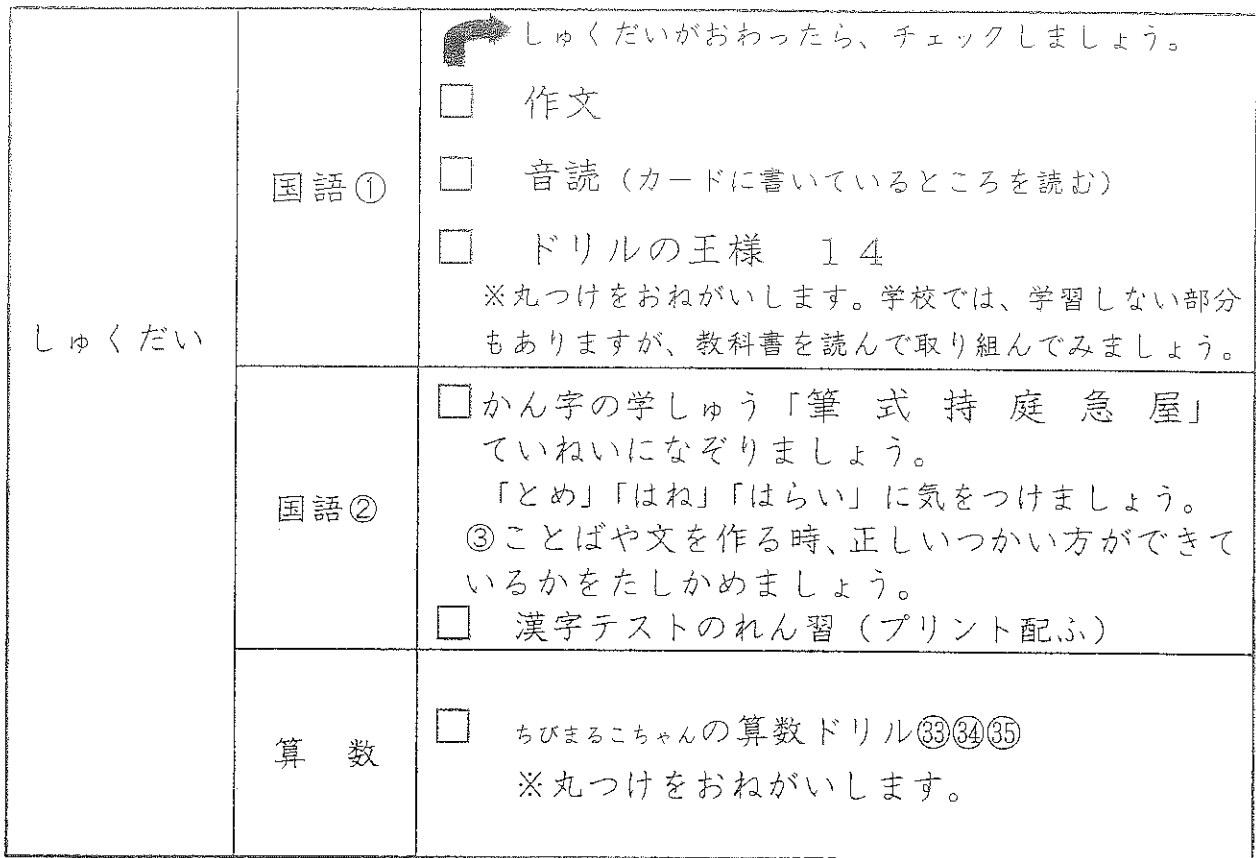 しゅくだい
国語①
しゅくだいがおわったら、チェックしましょう。
□ 作文
□ 音読（カードに書いているところを読む）
□ ドリルの王様 １４
※丸つけをおねがいします。学校では、学習しない部分
もありますが、教科書を読んで取り組んでみましょう。
国語②
□かん字の学しゅう「筆 式 持 庭 急 屋」
ていねいになぞりましょう。
「とめ」「はね」「はらい」に気をつけましょう。
③ことばや文を作る時、正しいつかい方ができて
いるかをたしかめましょう。
□ 漢字テストのれん習（プリント配ふ）
算 数
□ ちびまるこちゃんの算数ドリル㉝㉞㉟
※丸つけをおねがいします。